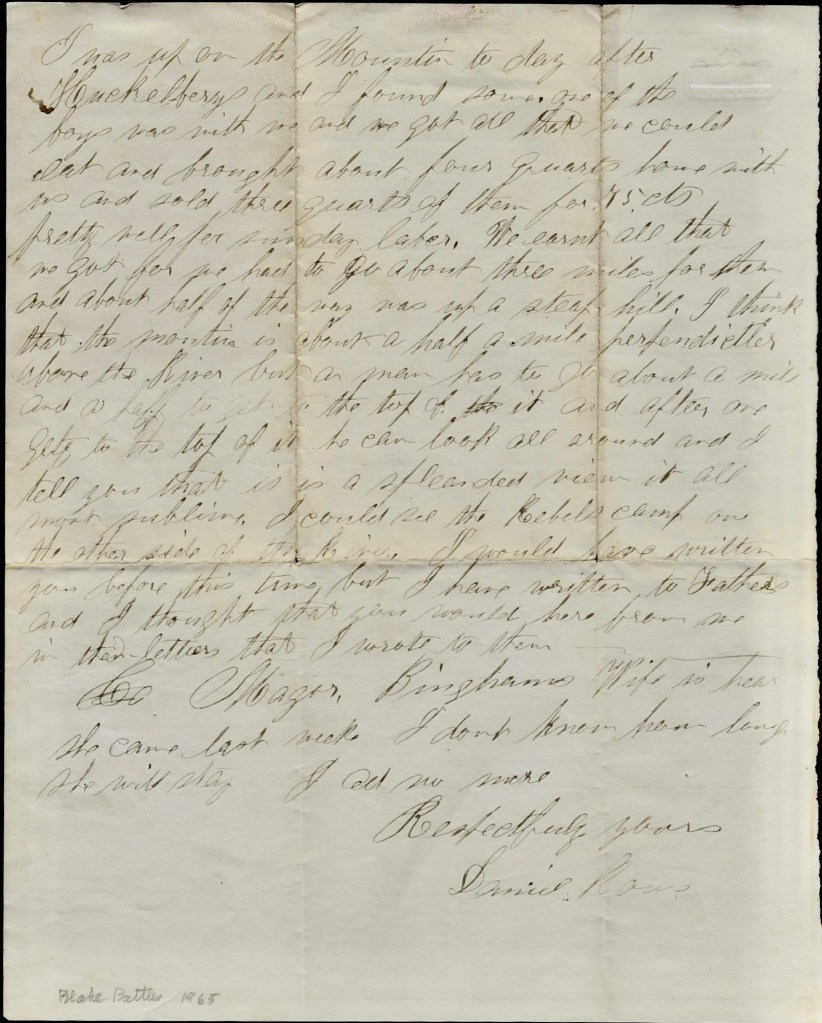 I was up on the Mountin to day after
Huckelberys and I found some. one of the
boys was with me and we got all that we could
eat and brought about four quarts home with
us and sold three quarts of them for 45 cts
pretty well for sunday laber. We earnt all that
we got for we had to go about three miles for them
and about half of the way was up a steap hill. I think
that the montin is about a half a mile perpendicller
above the River but a man has to go about a mile
and a half to get to the top of the it and after one
gets to the top of it he can look all around and I
tell you that is is a spleanded view it all
most sublime. I could see the Rebels camp on
the other side of the River. I would have written
you before this time but I have written to Fathers
and I thought that you would here from me
in their letters that I wrote to them
Co Magor. Binghams Wife is hear
she came last weeke I dont know how long
she will stay I ad no more
Respectfuly yours
Daniel
Blake Battles 1965